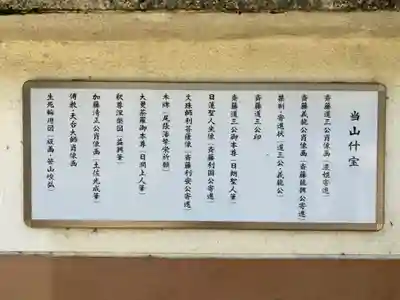 当山什宝
斎藤道三公肖像画(濃姫寄進)
斎藤義龍公肖像画(斎藤龍興公寄進)
禁制・寄進状(道三公・義龍公)
斎藤道三公印
斎藤道三公御本尊(日朗聖人筆)
日蓮聖人坐像(斎藤利国公寄進)
文殊師利菩薩像(斎藤利安公寄進)
木碑(尾張藩祭栄祈願)
大曼荼羅御本尊(日開上人筆)
釈尊涅槃図(益興筆)
加藤清正公肖像画(土佐光成筆)
傳教・天台大師肖像画
生死輪廻図(版画・笹山